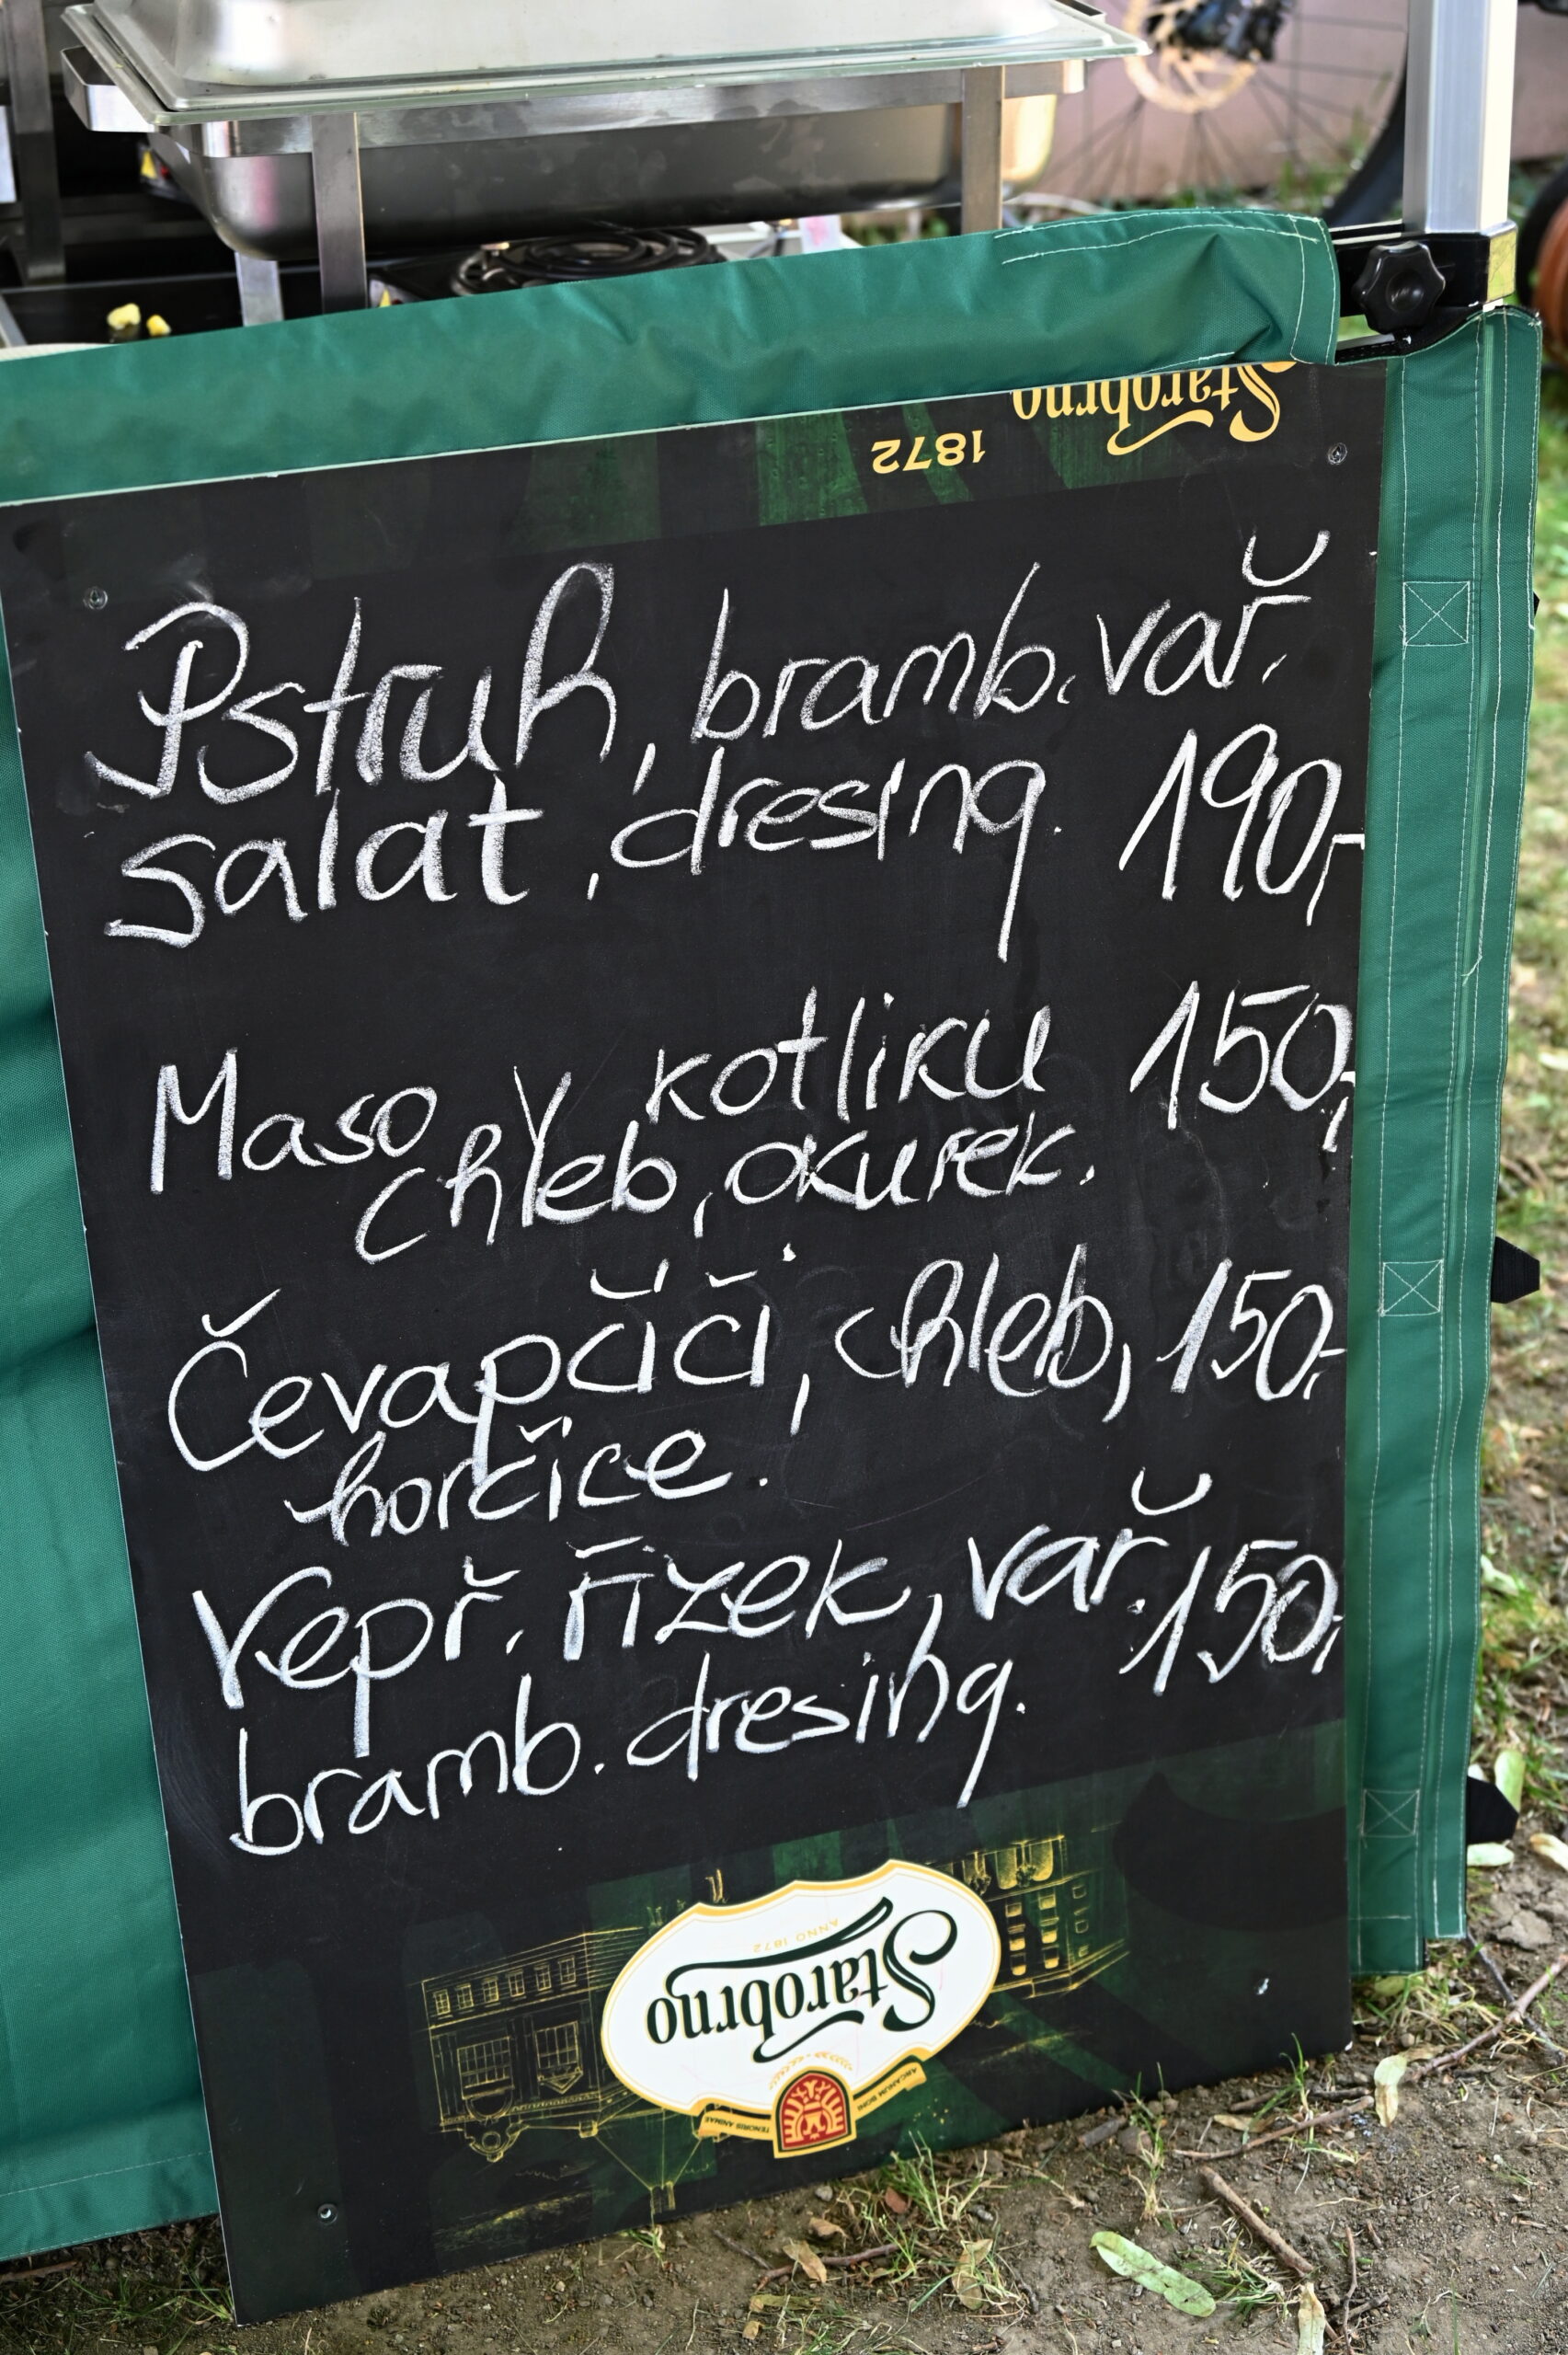 Starobrno
1872
Pstruh, bramb. vař.
salat, dresing. 190,-
Maso v kotliku 150,-
chleb, okurek.
Čevapčiči, chleb, 150,-
horčice.
Vepř. řizek, vař. 150,-
bramb. dresing.
ANNO 1872
Starobrno
TENDRIS ANIMAE ARCANUM BONI